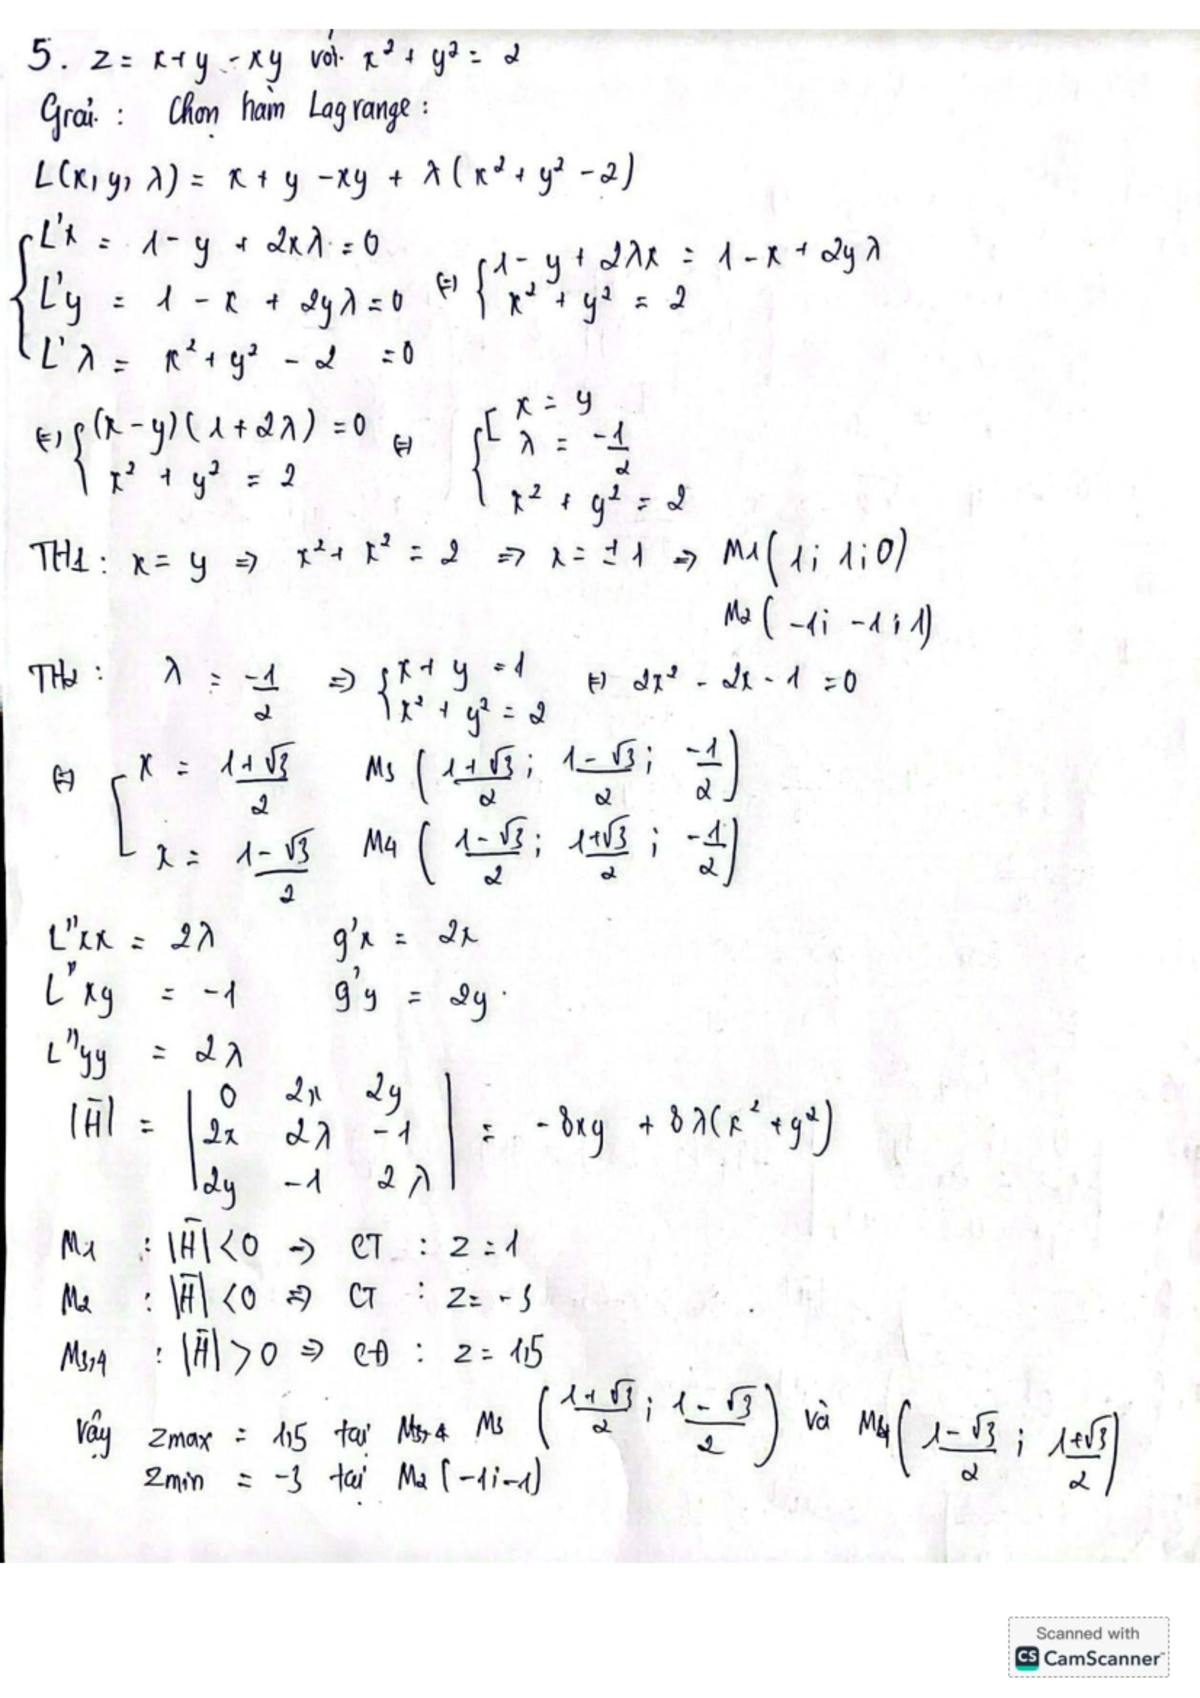 5. z = x+y - xy với x² + y² = 2
Giải : Chọn hàm Lagrange :
L(x, y, λ) = x + y - xy + λ(x² + y² - 2)
L'x = 1 - y + 2xλ = 0
L'y = 1 - x + 2yλ = 0
L'λ = x² + y² - 2 = 0
⇔ { 1 - y + 2λx = 1 - x + 2yλ
x² + y² = 2
⇔ { (x - y)(1 + 2λ) = 0
x² + y² = 2
⇔ { [ x = y
λ = -1/2
x² + y² = 2
TH1 : x = y ⇒ x² + x² = 2 ⇒ x = ±1 ⇒ M1(1; 1; 0)
M2(-1; -1; 1)
TH2 : λ = -1/2 ⇒ { x + y = 1
x² + y² = 2
⇔ 2x² - 2x - 1 = 0
⇔ [ x = (1+√3)/2 M3 ( (1+√3)/2 ; (1-√3)/2 ; -1/2 )
x = (1-√3)/2 M4 ( (1-√3)/2 ; (1+√3)/2 ; -1/2 )
L''xx = 2λ g'x = 2x
L''xy = -1 g'y = 2y
L''yy = 2λ
|H̄| = | 0 2x 2y
2x 2λ -1
2y -1 2λ | = - 8xy + 8λ(x² + y²)
M1 : |H̄| < 0 → CT : z = 1
M2 : |H̄| < 0 ⇒ CT : z = -3
M3,4 : |H̄| > 0 ⇒ CĐ : z = 1,5
Vậy zmax = 1,5 tại M3,4 M3 ( (1+√3)/2 ; (1-√3)/2 ) và M4 ( (1-√3)/2 ; (1+√3)/2 )
zmin = -3 tại M2 (-1; -1)
Scanned with
CS CamScanner